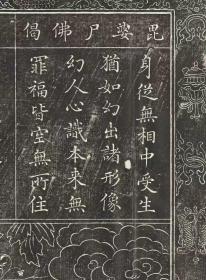 毘婆尸佛偈
身從無相中受生
猶如幻出諸形像
幻人心識本來無
罪福皆空無所住